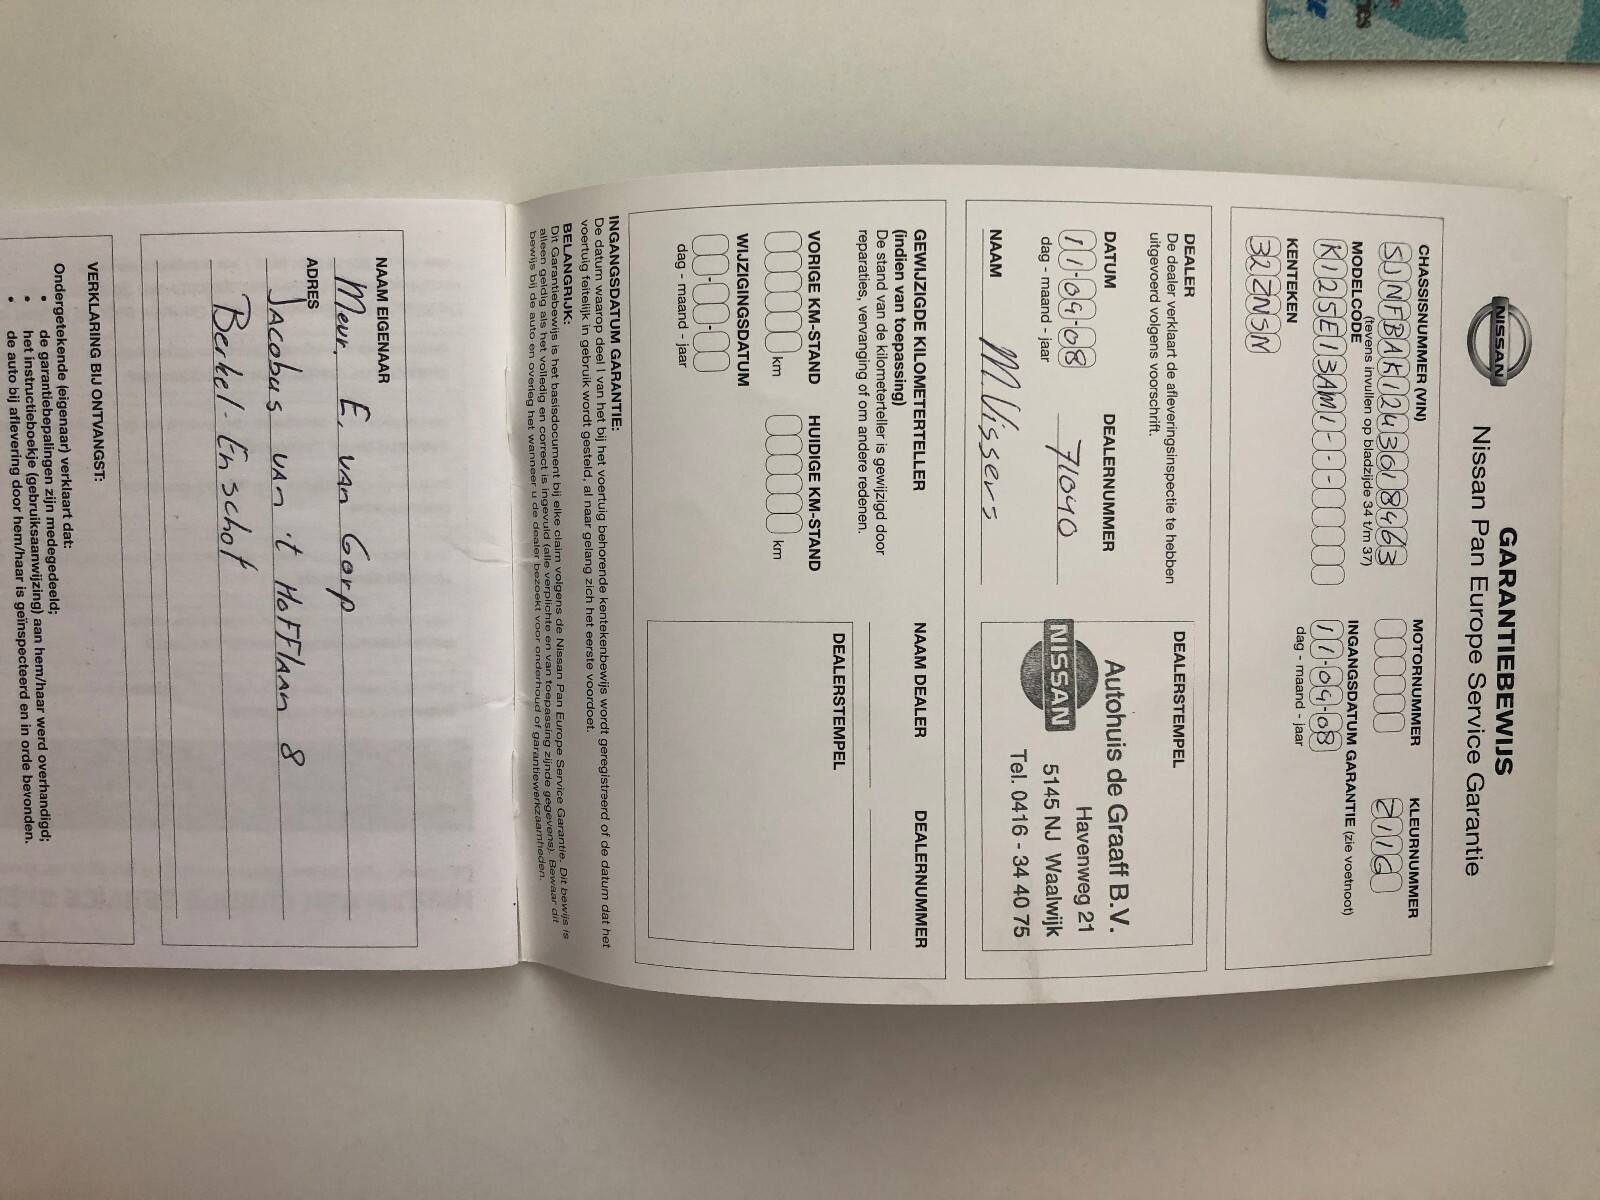 NISSAN
GARANTIEBEWIJS
Nissan Pan Europe Service Garantie
CHASSISNUMMER (VIN)
SJNFBAK12U3018463
(tevens invullen op bladzijde 34 t/m 37)
MOTORNUMMER
KLEURNUMMER
MODELCODE
K125E13AM1---
INGANGSDATUM GARANTIE (zie voetnoot)
11-09-08
dag - maand - jaar
KENTEKEN
32ZNSN
DEALER
De dealer verklaart de afleveringsinspectie te hebben
uitgevoerd volgens voorschrift.
DATUM
11-09-08
dag - maand - jaar
DEALERNUMMER
71040
NAAM
M. Vissers
DEALERSTEMPEL
Autohuis de Graaff B.V.
Havenweg 21
NISSAN
5145 NJ Waalwijk
Tel. 0416 - 34 40 75
GEWIJZIGDE KILOMETERTELLER
(indien van toepassing)
De stand van de kilometerteller is gewijzigd door
reparaties, vervanging of om andere redenen.
NAAM DEALER
DEALERNUMMER
VORIGE KM-STAND
km
HUIDIGE KM-STAND
km
DEALERSTEMPEL
WIJZIGINGSDATUM
dag - maand - jaar
INGANGSDATUM GARANTIE:
De datum waarop deel I van het bij het voertuig behorende kentekenbewijs wordt geregistreerd of de datum dat het
voertuig feitelijk in gebruik wordt gesteld, al naar gelang zich het eerste voordoet.
BELANGRIJK:
Dit Garantiebewijs is het basisdocument bij elke claim volgens de Nissan Pan Europe Service Garantie. Dit bewijs is
alleen geldig als het volledig en correct is ingevuld (alle verplichte en van toepassing zijnde gegevens). Bewaar dit
bewijs bij de auto en overleg het wanneer u de dealer bezoekt voor onderhoud of garantiewerkzaamheden.
NAAM EIGENAAR
Mevr. E. van Gorp
ADRES
Jacobus van 't Hofflaan 8
Berkel-Enschot
VERKLARING BIJ ONTVANGST:
Ondergetekende (eigenaar) verklaart dat:
• de garantiebepalingen zijn medegedeeld;
• het instructieboekje (gebruiksaanwijzing) aan hem/haar werd overhandigd;
• de auto bij aflevering door hem/haar is geïnspecteerd en in orde bevonden.